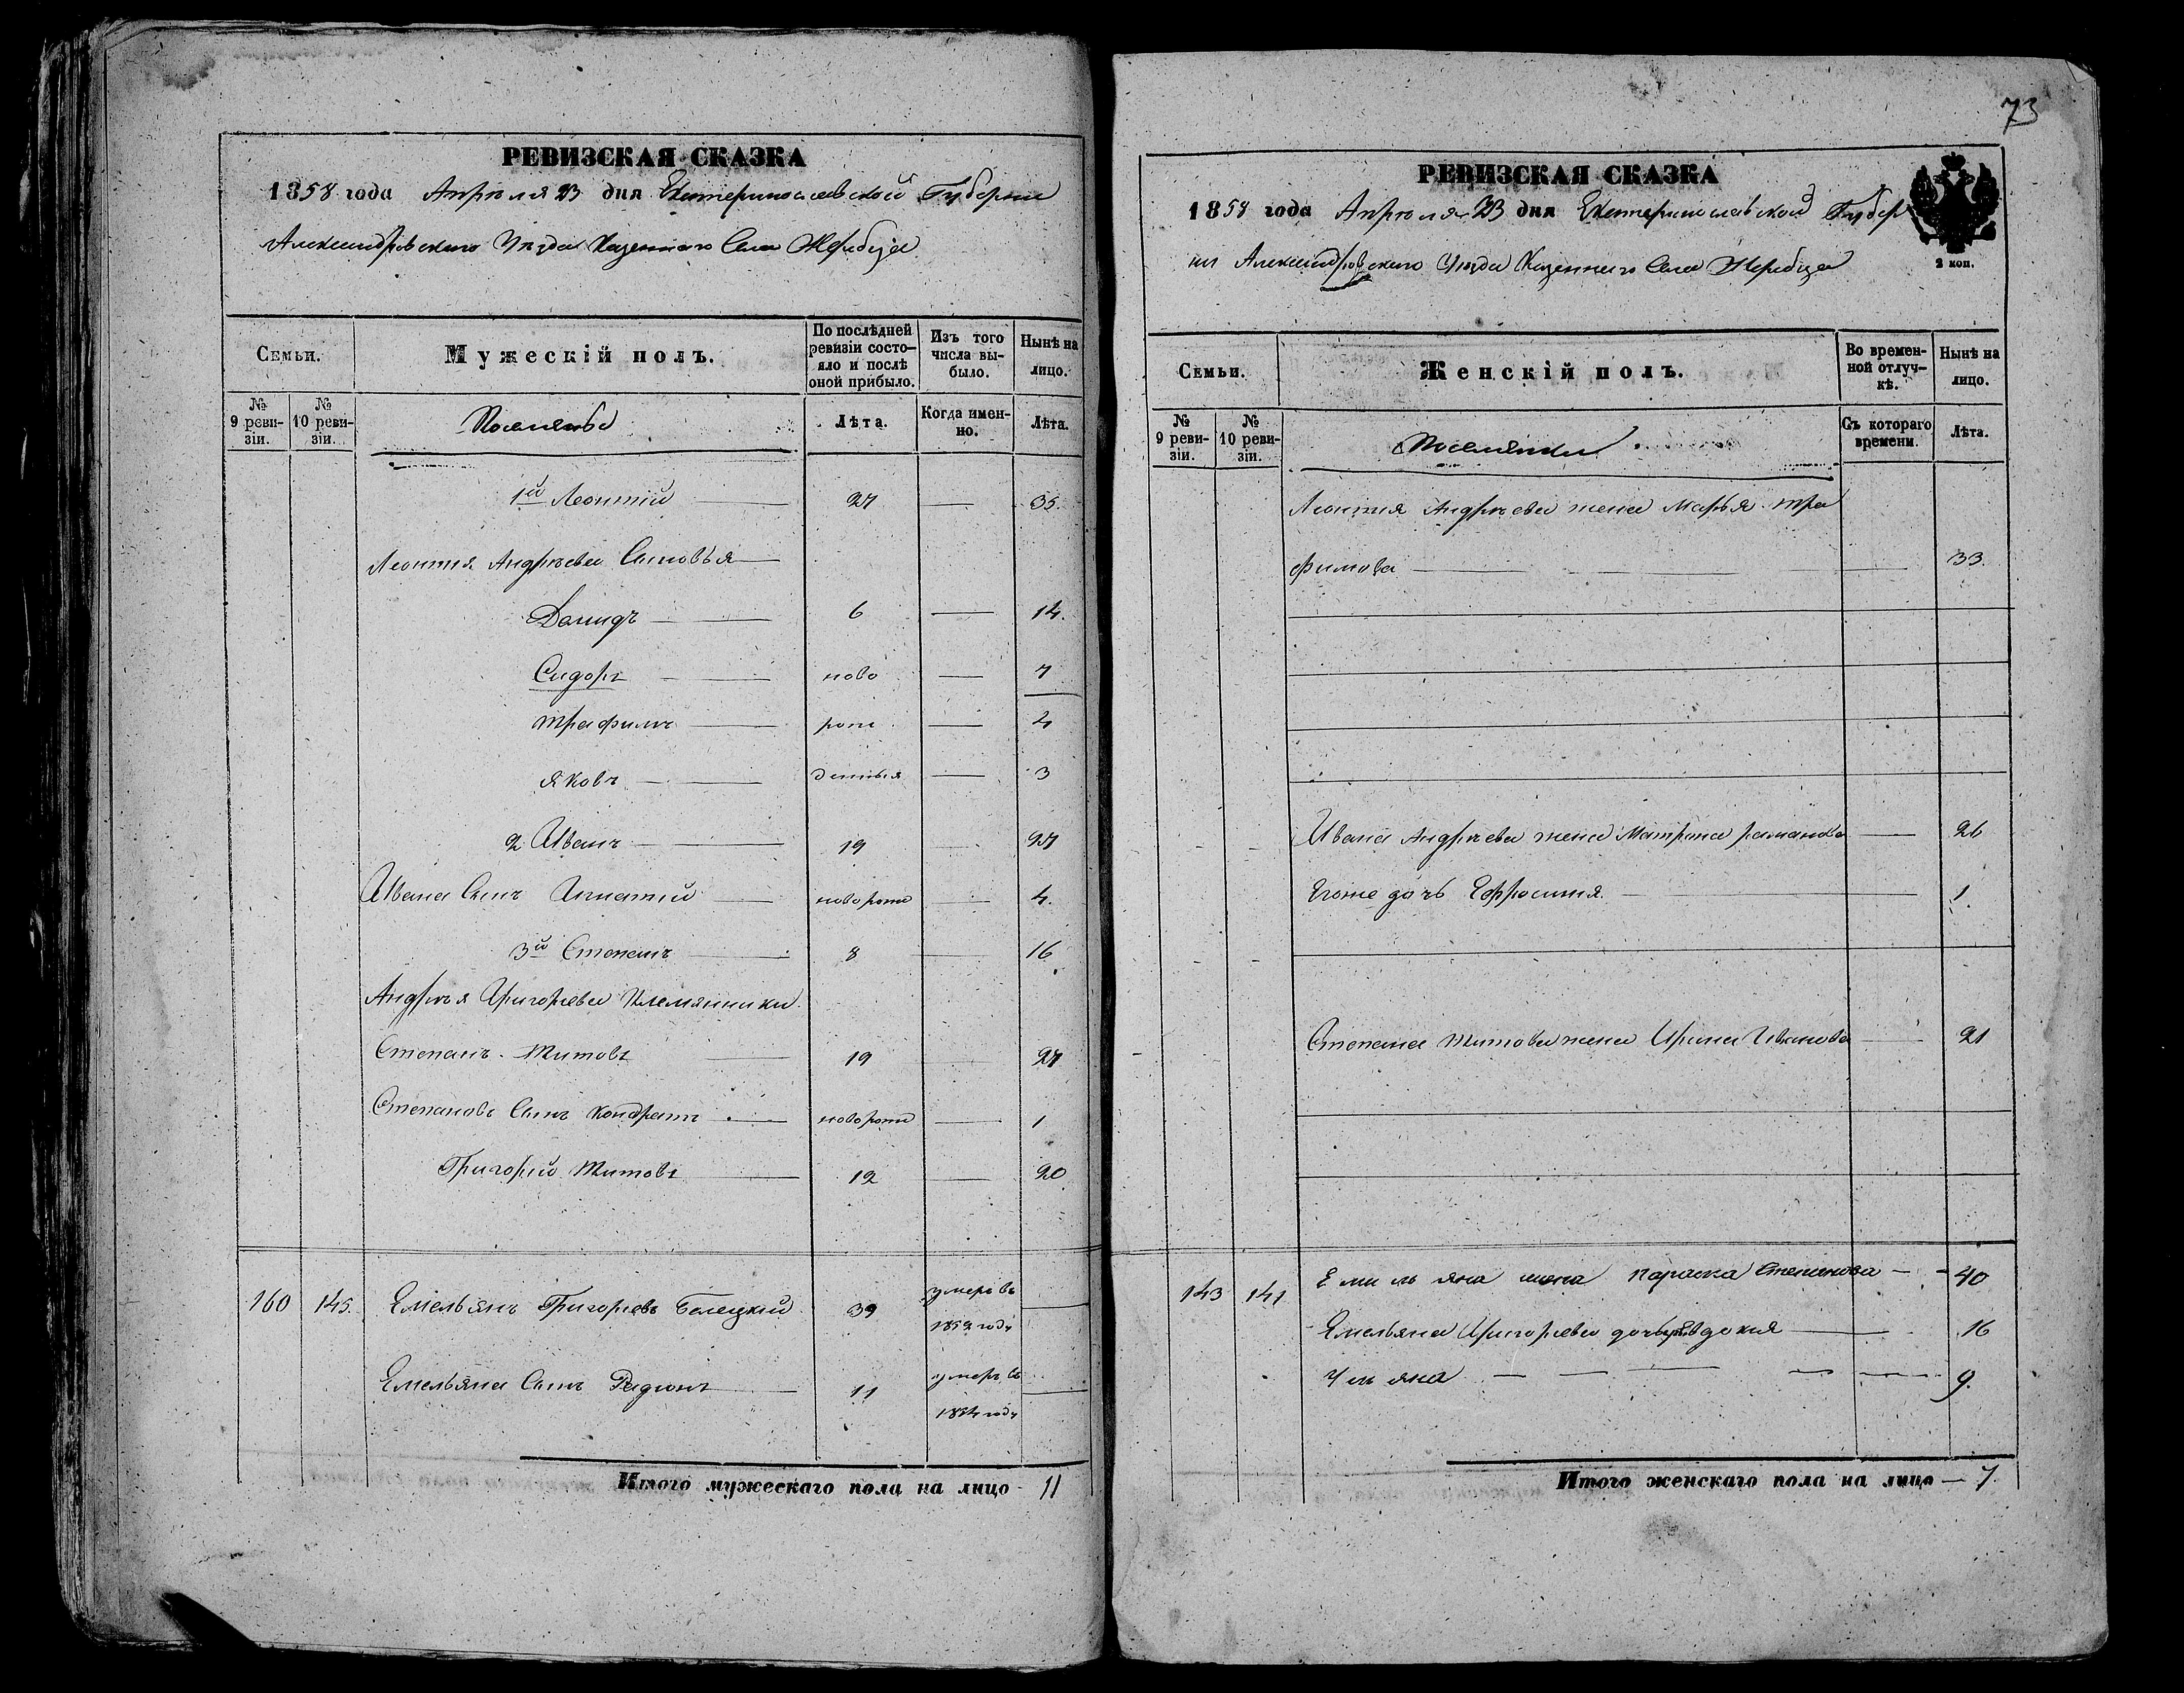 РЕВИЗСКАЯ СКАЗКА
1858 года Апреля 23 дня Екатеринославской Губернии
Александровскаго Уезда Казеннаго Села Жеребца
Семьи.
Мужескій полъ.
По послѣдней ревизіи состояло и послѣ оной прибыло.
Изъ того числа выбыло.
Нынѣ на лицо.
№ 9 ревизіи.
№ 10 ревизіи.
Поселяне
Лѣта.
Когда именно.
Лѣта.
1й Леонтій — 27 — 35.
Леонтія Андреева Сыновья —
Демидъ — 6 — 14.
Сидоръ — ново — 7
Трафимъ — рож — 4
Яковъ — денныя — 3
2 Иванъ — 19 — 27
Ивана Сынъ Игнатій — новорож — 4.
3й Степанъ — 8 — 16
Андрея Григорьева Племянники.
Степанъ Титовъ — 19 — 27
Степановъ Сынъ Кондратъ — новорож — 1
Григорій Титовъ — 12 — 20
160 145. Емельянъ Григорьевъ Белецкій 39 умеръ въ
1852 году
Емельяна Сынъ Радионъ — 11 умеръ въ
1854 году
Итого мужескаго пола на лицо 11
73
РЕВИЗСКАЯ СКАЗКА
1858 года Апреля 23 дня Екатеринославской Губер
нии Александровскаго Уезда Казеннаго Села Жеребца
2 коп.
Семьи.
Женскій полъ.
Во временной отлучкѣ.
Нынѣ на лицо.
№ 9 ревизіи.
№ 10 ревизіи.
Поселянки
Съ котораго времени.
Лѣта.
Леонтия Андреева жена Марья Тра
фимова — — — 33.
Ивана Андреева жена Матрона раманова — 26
Егоже дочь Ефросиния. — 1.
Степана Титова жена Ирина Иванова — 21
143 141 Емильяна жена Параска Степанова — 40
Емельяна Григорьева дочь Евдокия — 16
Ульяна — — — — 9.
Итого женскаго пола на лицо — 7.